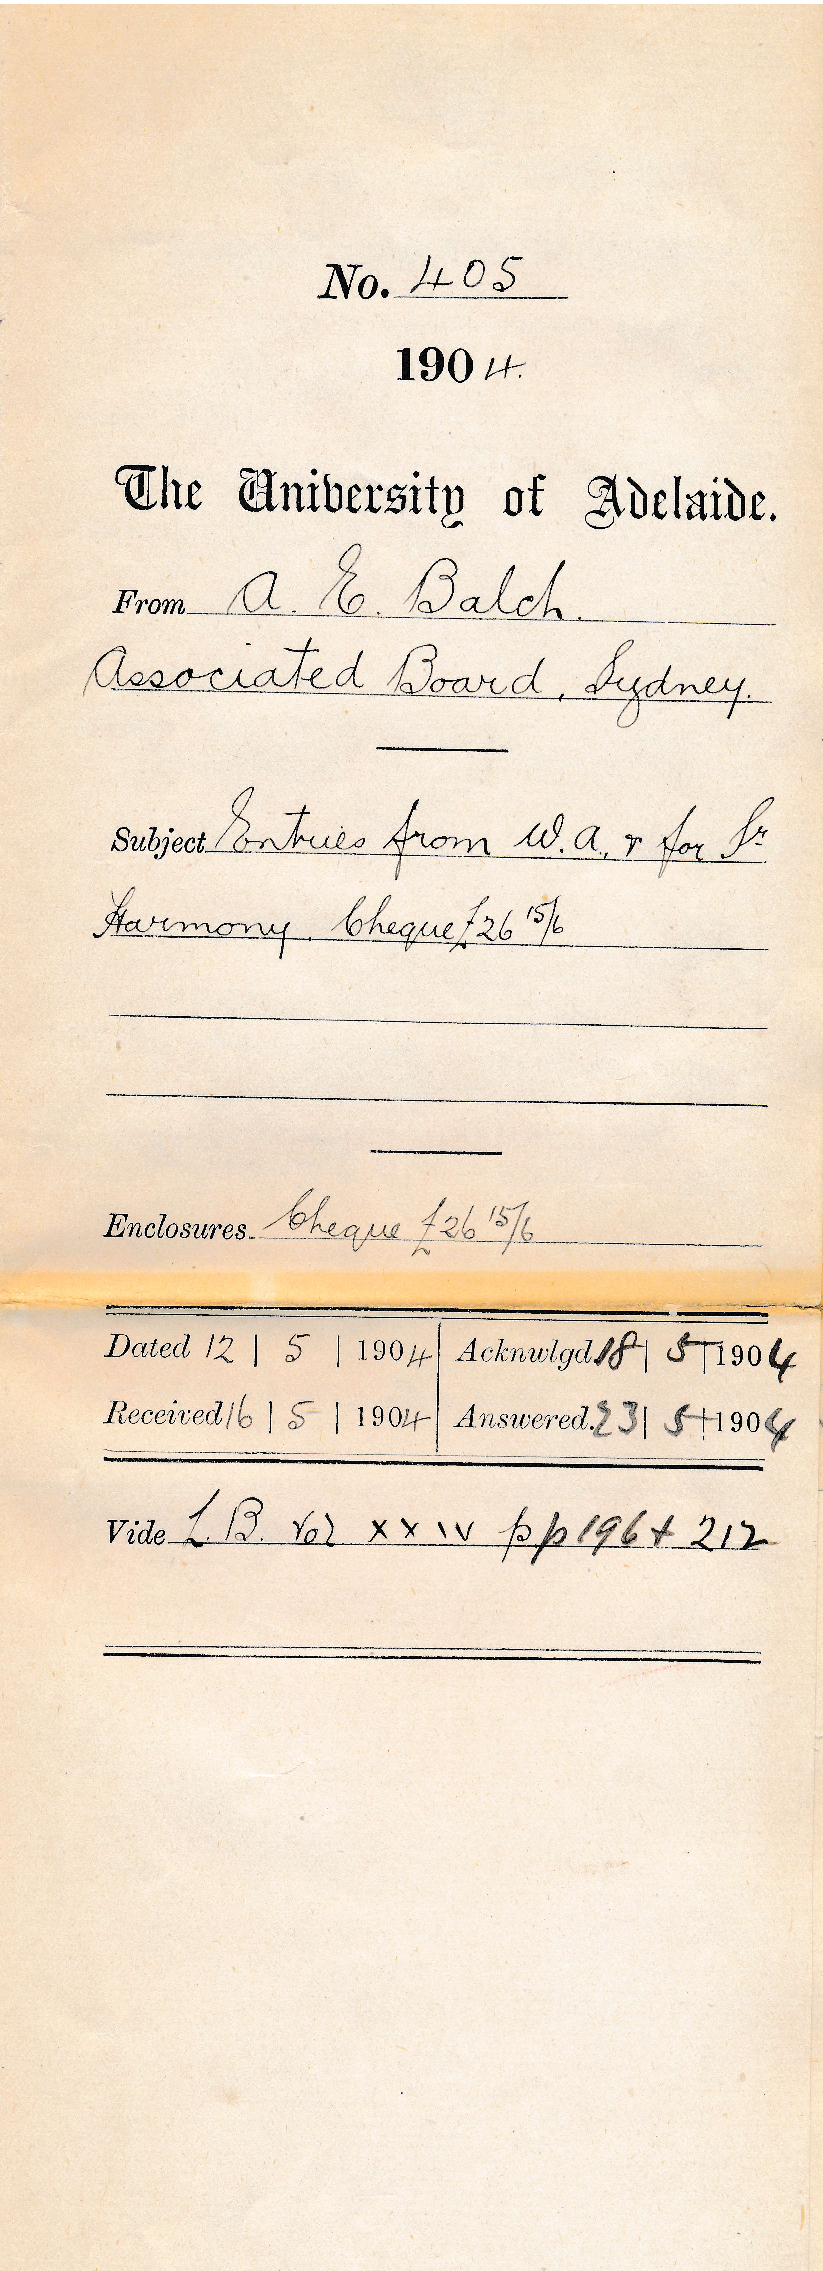 No. 405
1904.
The University of Adelaide.
From A. E. Balch.
Associated Board, Sydney.
Subject Entries from W.A., & for Sr
Harmony. Cheque £26 15/6
Enclosures. Cheque £26 15/6
Dated 12 | 5 | 1904 Acknwlgd. 18 | 5 | 1904
Received 16 | 5 | 1904 Answered. 23 | 5 | 1904
Vide L.B. Vol xxiv pp 196 + 212